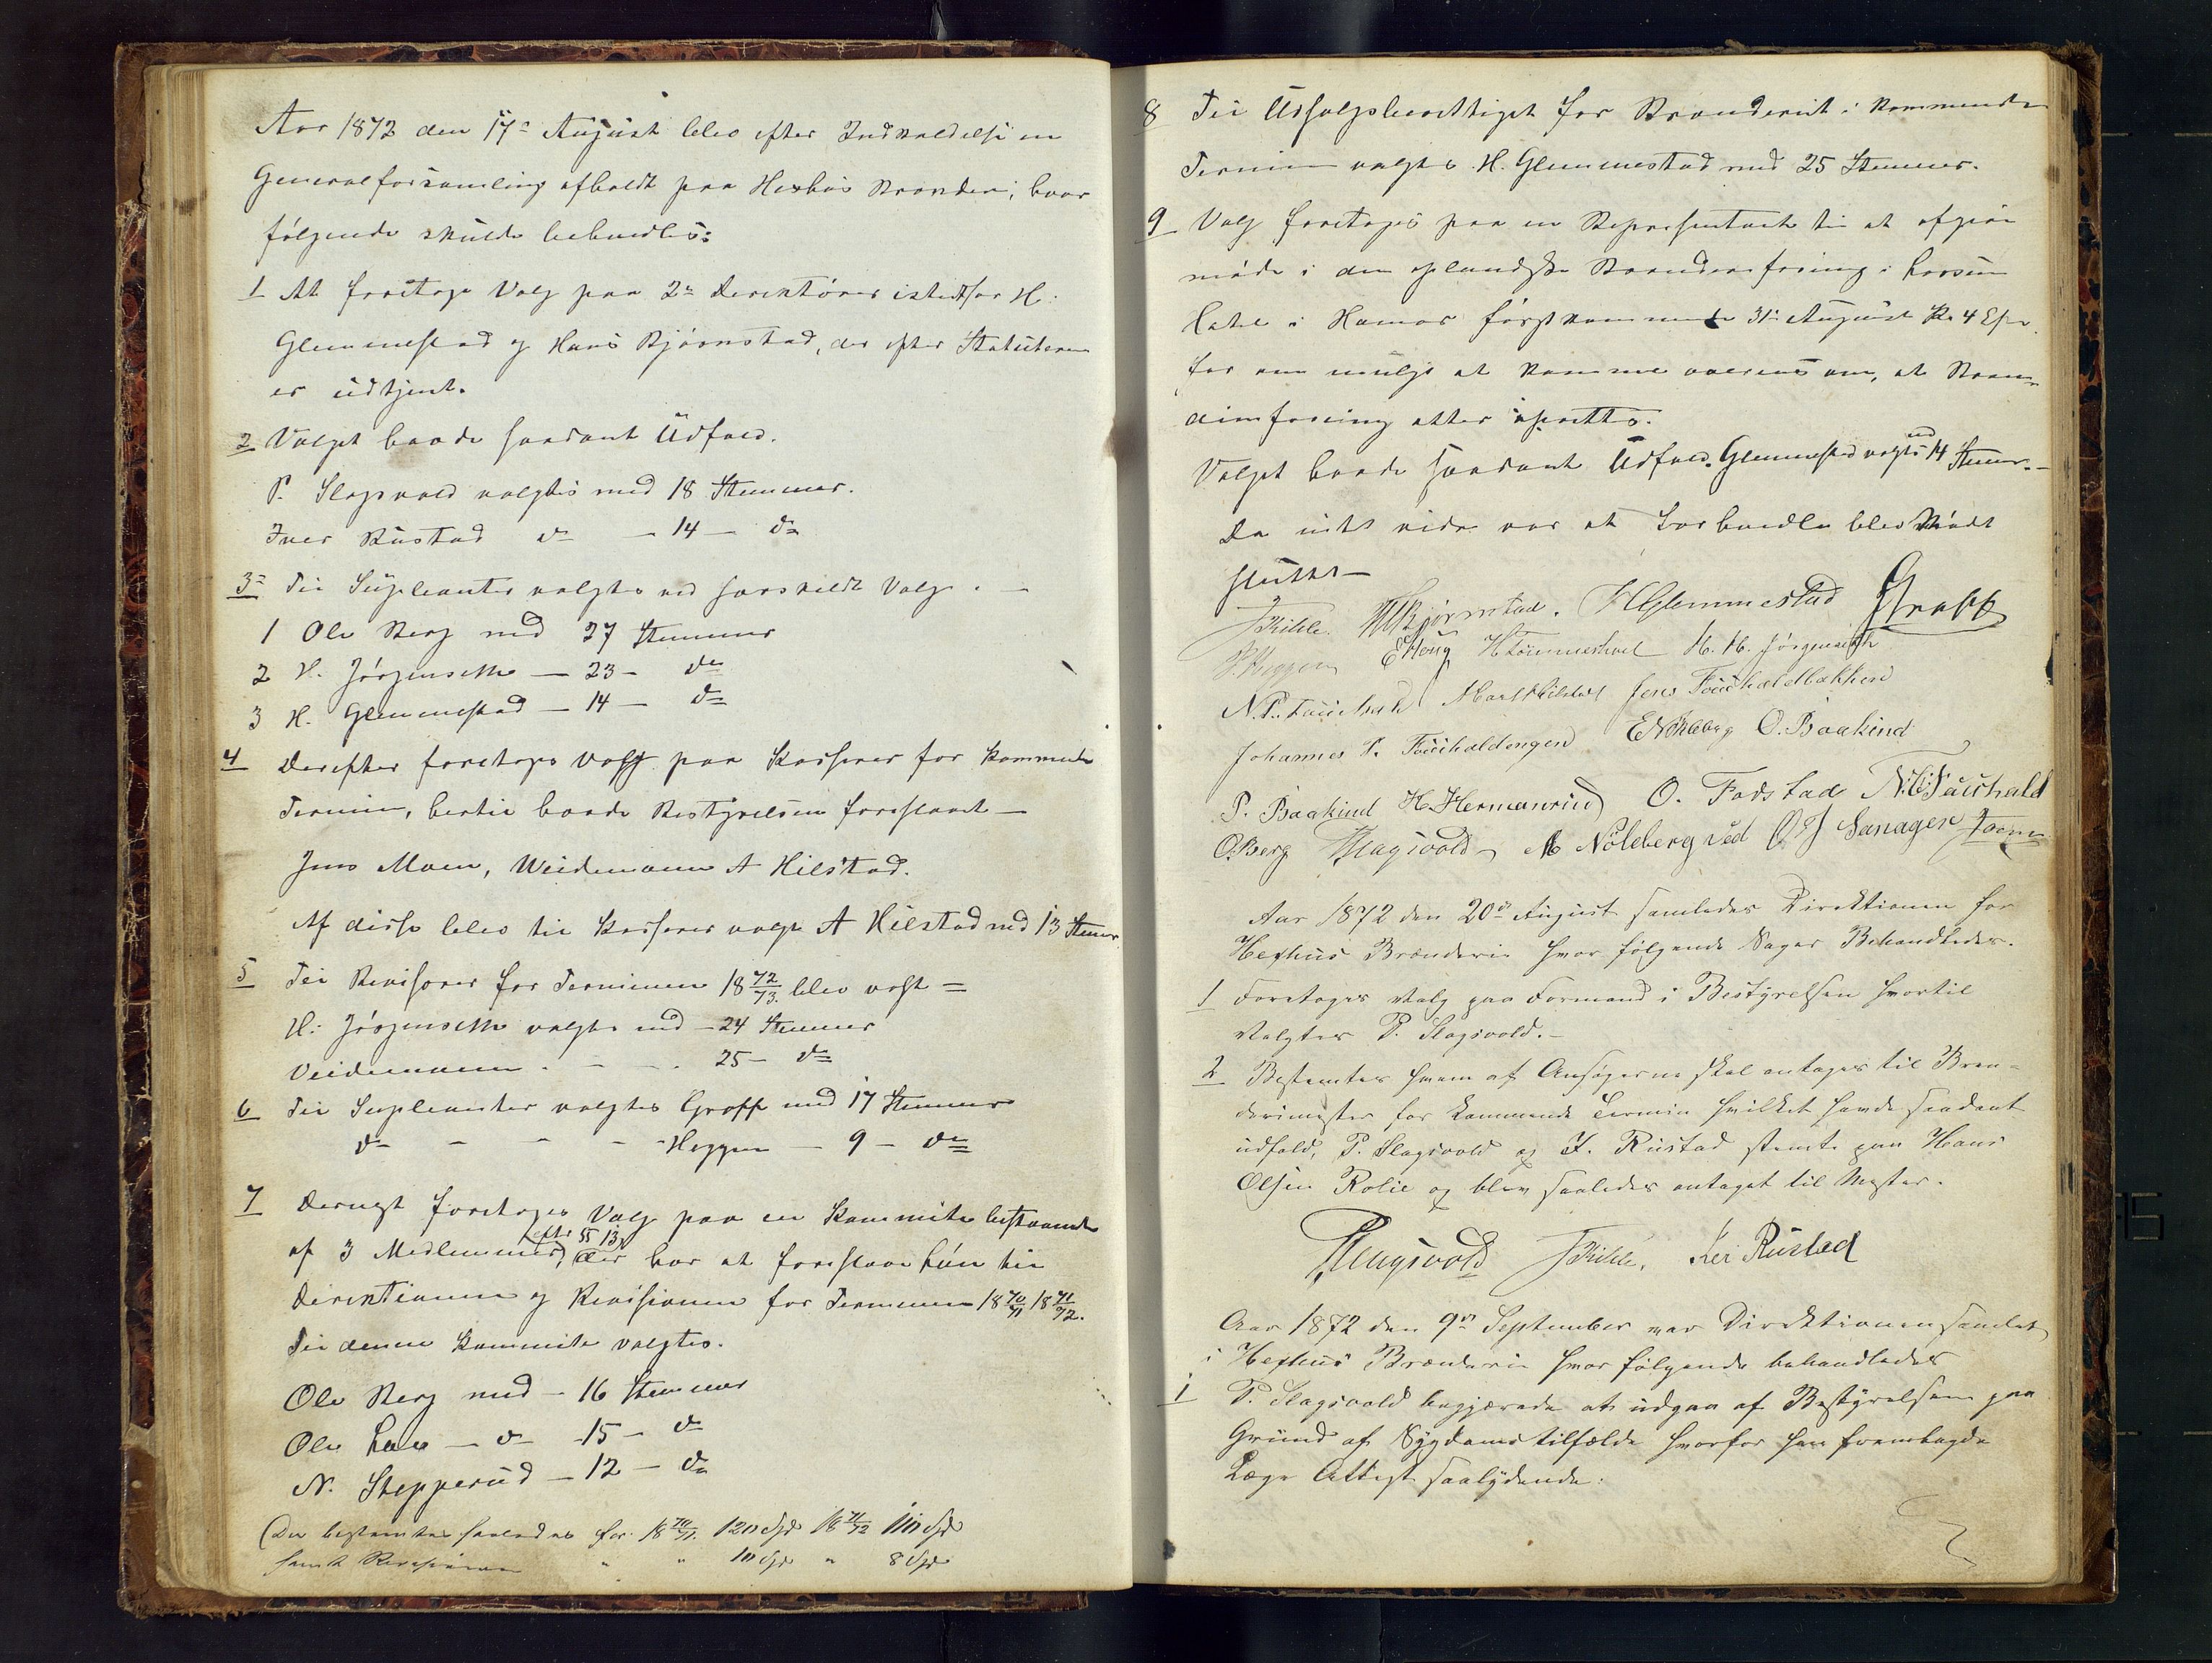 Aar 1872 den 17de August blev efter Indkaldelse en
Generalforsamling afholdt paa Hexhus Brænderi, hvor
følgende skulde behandles:
1 At foretage Valg paa 2de Direktører istedtfor H.
Glemmestad og Hans Bjørnstad, der efter Statuterne
er udtjent.
2 Valget havde saadant Udfald.
P. Slagsvold valgtes med 18 Stemmer.
Iver Rustad do - 14 - do
3 Til Supleanter valgtes ved særskildt Valg. -
1 Ole Berg med 27 Stemmer
2 H. Jørgensen - 23 - do
3 H. Glemmestad - 14 - do
4 Derefter foretoges Valg paa Kasserer for kommende
Termin, hertil havde Bestyrelsen foreslaaet -
Jens Moen, Weidemann A Hilstad.
Af disse blev til Kasserer valgt A Hilstad med 13 Stemmer
5 Til Revisorer for Terminen 18 72/73 blev valgt =
H. Jørgensen valgtes med - 24 Stemmer
Veidemann - - 25 - do
6 Til Supleanter valgtes Graff med 17 Stemmer
do - - - Heggen - 9 - do
7 Dernest foretoges Valg paa en Kommite bestaaende
af 3 Medlemmer (efter §§ 13), der har at foreslaae Løn til
Direktionen og Revisionen for Terminen 18 70/71 18 71/72.
Til denne Kommite valgtes.
Ole Berg med - 16 Stemmer
Ole Lær - do - 15 - do
N. Stepperud - 12 - do
(Der bestemtes saaledes for 18 70/71 120 Spd 18 71/72 110 Spd
samt Revisionen " " 10 Spd " 8 Spd
8 Til Udsalgsberettiget for Brænderiet i kommende
Termin valgtes H. Glemmestad med 25 Stemmer.
9 Valg foretoges paa en Representant til at afgive
møde i den oplandske Brænderiforening i
Hotel i Hamar førstkommende 31te August Kl. 4 Efm.
for om muligt at komme overens om, at Bræn-
deriforening atter oprettes.
Valget havde saadant Udfald. Glemmestad valgtes med 14 Stemmer. -
Da intet videre var at forhandle blev Mødet
sluttet -
JKihle. HBjørnstad. HGlemmestad Graff
Heggen EHoug H. H. Jørgensen
N.P. Fauchald Jens Fauchaldbakken
Johannes P. Fauchaldengen O. Baakind
P. Baakind H. Hermanrud O. Fodstad N. Fauchald
O.Berg PSlagsvold M Nøkleberg ved
Aar 1872 den 20de August samledes Direktionen for
Hexhus Brænderi hvor følgende Sager Behandledes.
1 Foretoges Valg paa Formand i Bestyrelsen hvortil
Valgtes P. Slagsvold. -
2 Bestemtes hvem af Ansøgerne skal antages til Bræn-
derimester for kommende Termin hvilket havde saadant
udfald, P. Slagsvold og I. Rustad stemte paa Hans
Olsen Rolie og blev saaledes antaget til Mester.
PSlagsvold JKihle. Iver Rustad
Aar 1872 den 9de September var Direktionen samlet
i Hexhus Brænderi hvor følgende behandledes
1 P. Slagsvold begjærede at udgaa af Bestyrelsen paa
Grund af Sygdomstilfælde hvorfor han fremlagde
Læge Attest saalydende: